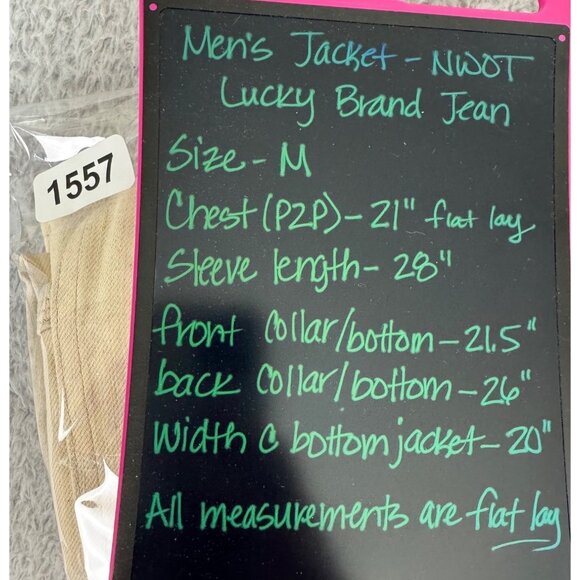 Men's Jacket - NWOT
Lucky Brand Jean
Size - M
1557
Chest (P2P) - 21" flat lay
Sleeve length - 28"
front collar/bottom - 21.5"
back collar/bottom - 26"
Width @ bottom jacket - 20"
All measurements are flat lay